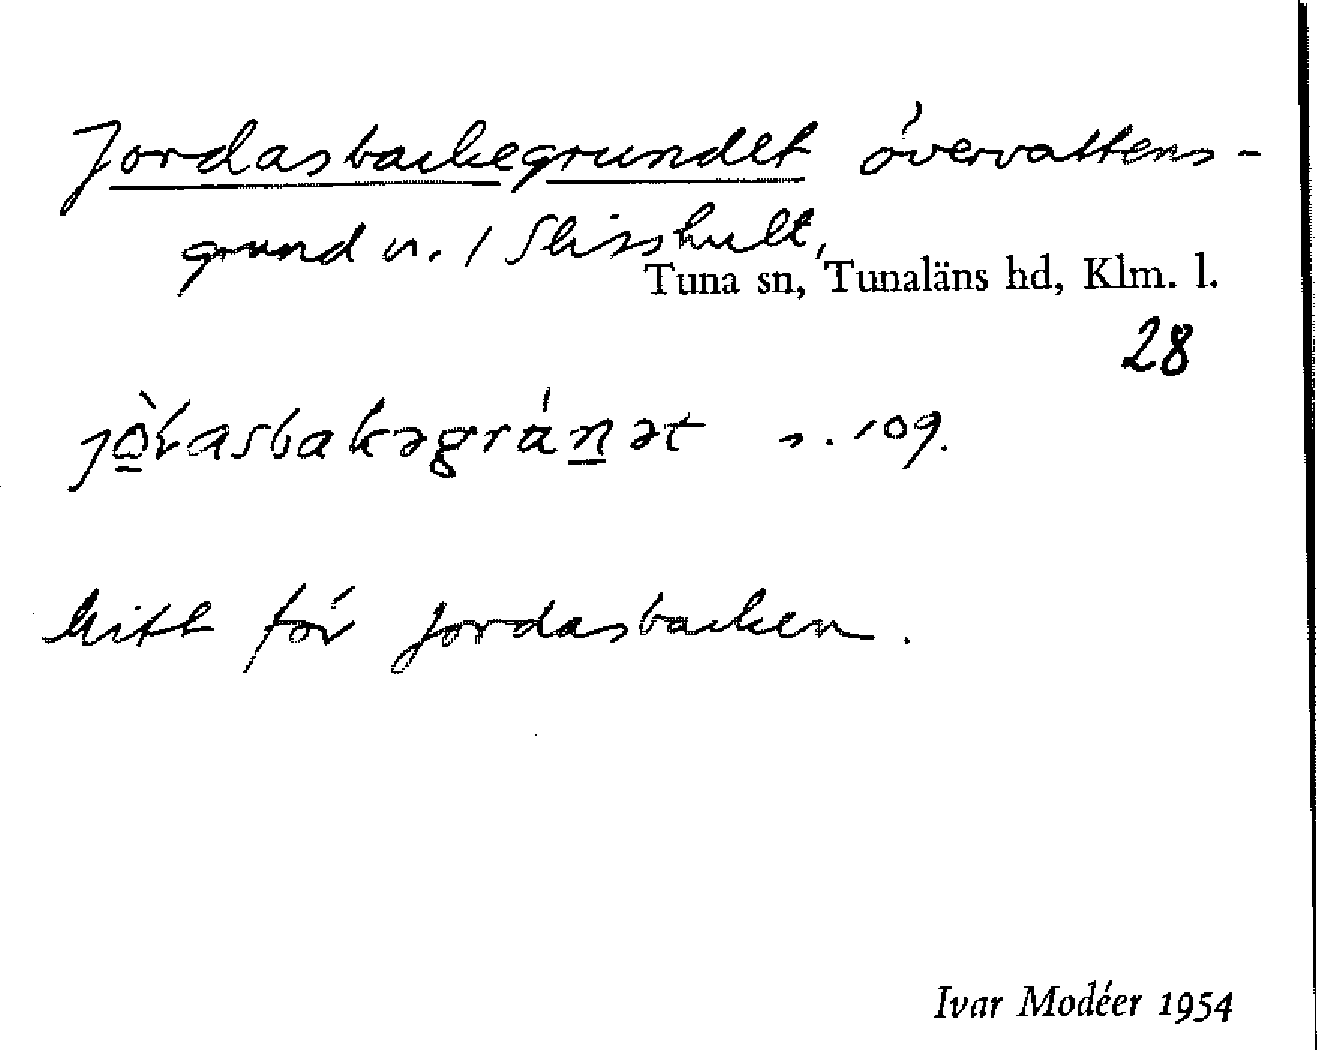 Jordasbackegrundet övervattens-
grund n. 1 Slisshult,
Tuna sn, Tunaläns hd, Klm. l.
28
s. 109.
Mitt för Jordasbacken.
Ivar Modéer 1954